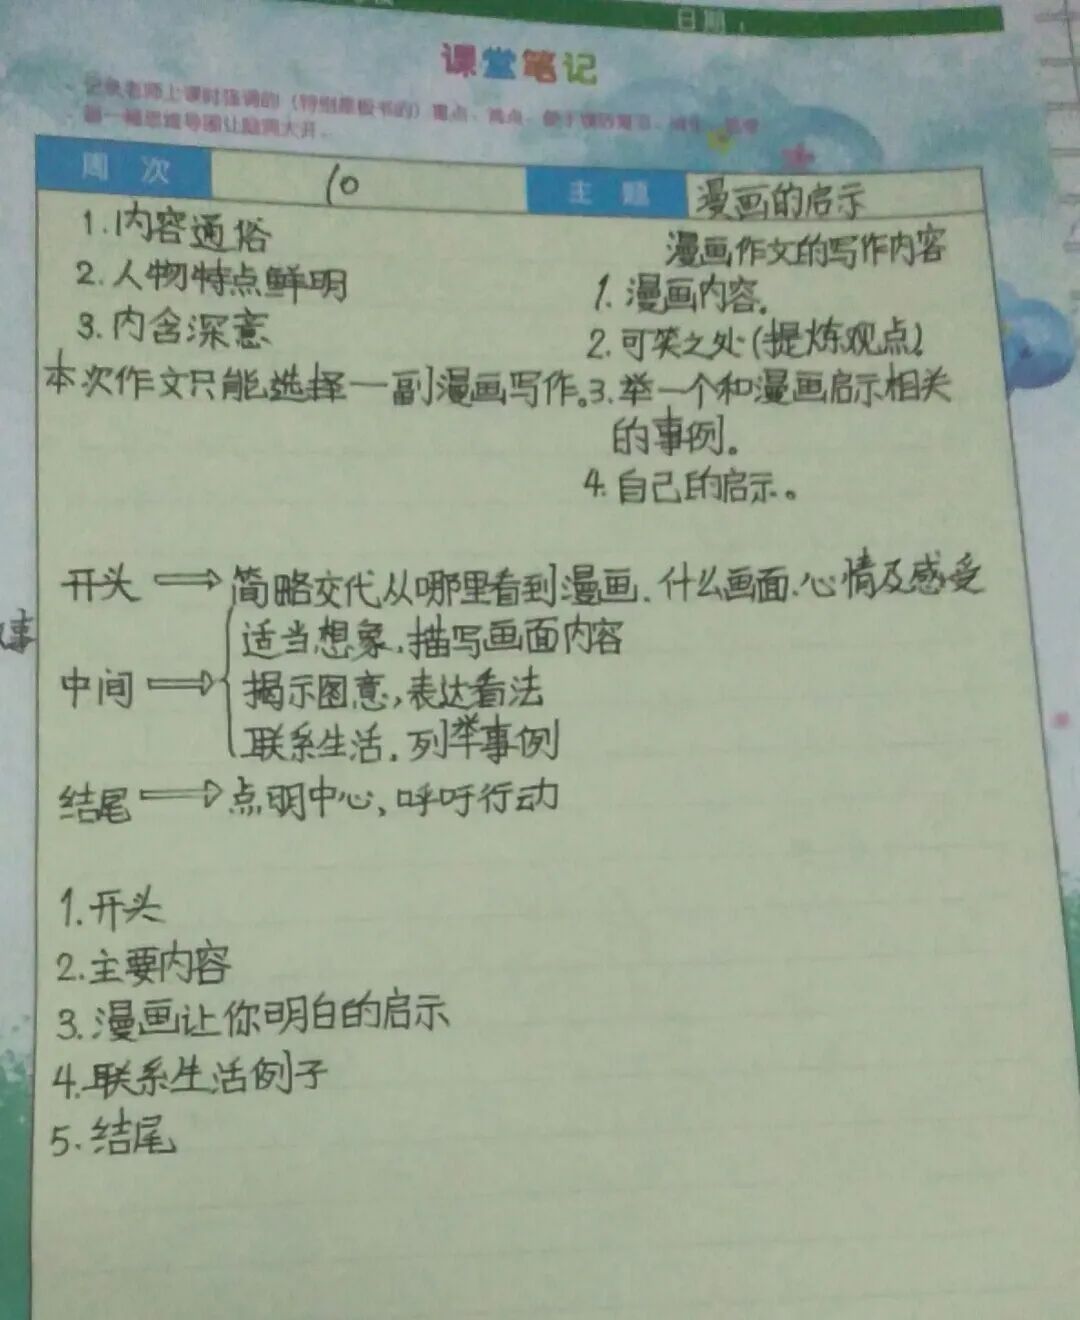 日期:
课堂笔记
记录老师上课时强调的（特别是板书的）重点、难点，便于课后复习、
画一幅思维导图让脑洞大开。
周次 10 主题 漫画的启示
1.内容通俗
2.人物特点鲜明
3.内含深意
本次作文只能选择一副漫画写作。
漫画作文的写作内容
1.漫画内容。
2.可笑之处(提炼观点)
3.举一个和漫画启示相关
的事例。
4.自己的启示。
开头 简略交代从哪里看到漫画.什么画面.心情及感受
事
中间 适当想象.描写画面内容
揭示图意,表达看法
联系生活.列举事例
结尾 点明中心,呼吁行动
1.开头
2.主要内容
3.漫画让你明白的启示
4.联系生活例子
5.结尾